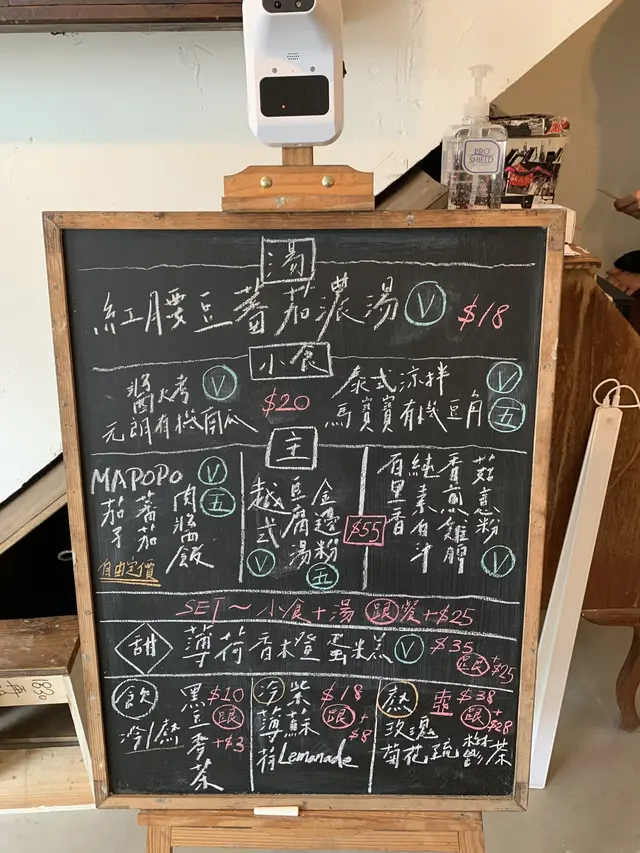 PRO
SHIELD
湯
紅腰豆蕃茄濃湯 V $18
小食
醬火考
元朗有機南瓜
V
$20
泰式涼拌
馬寶寶有機豆角
V
五
主
MAPOPO V
五
茄子
蕃茄
肉醬飯
自由定價
越式
豆腐湯
金邊粉
V
五
$55
百里香
純素白汁
香煎雞脾
菇蔥粉
V
SET～小食+湯 跟餐+$25
甜 薄荷香木橙蛋糕 V $35
跟 +$25
飲
冷/熱
黑豆麥茶
$10
跟
+$3
冷
紫蘇
薄荷Lemonade
$18
跟
+$8
熱
壺 $38
跟 +$28
玫瑰
菊花疏鬱茶
1830